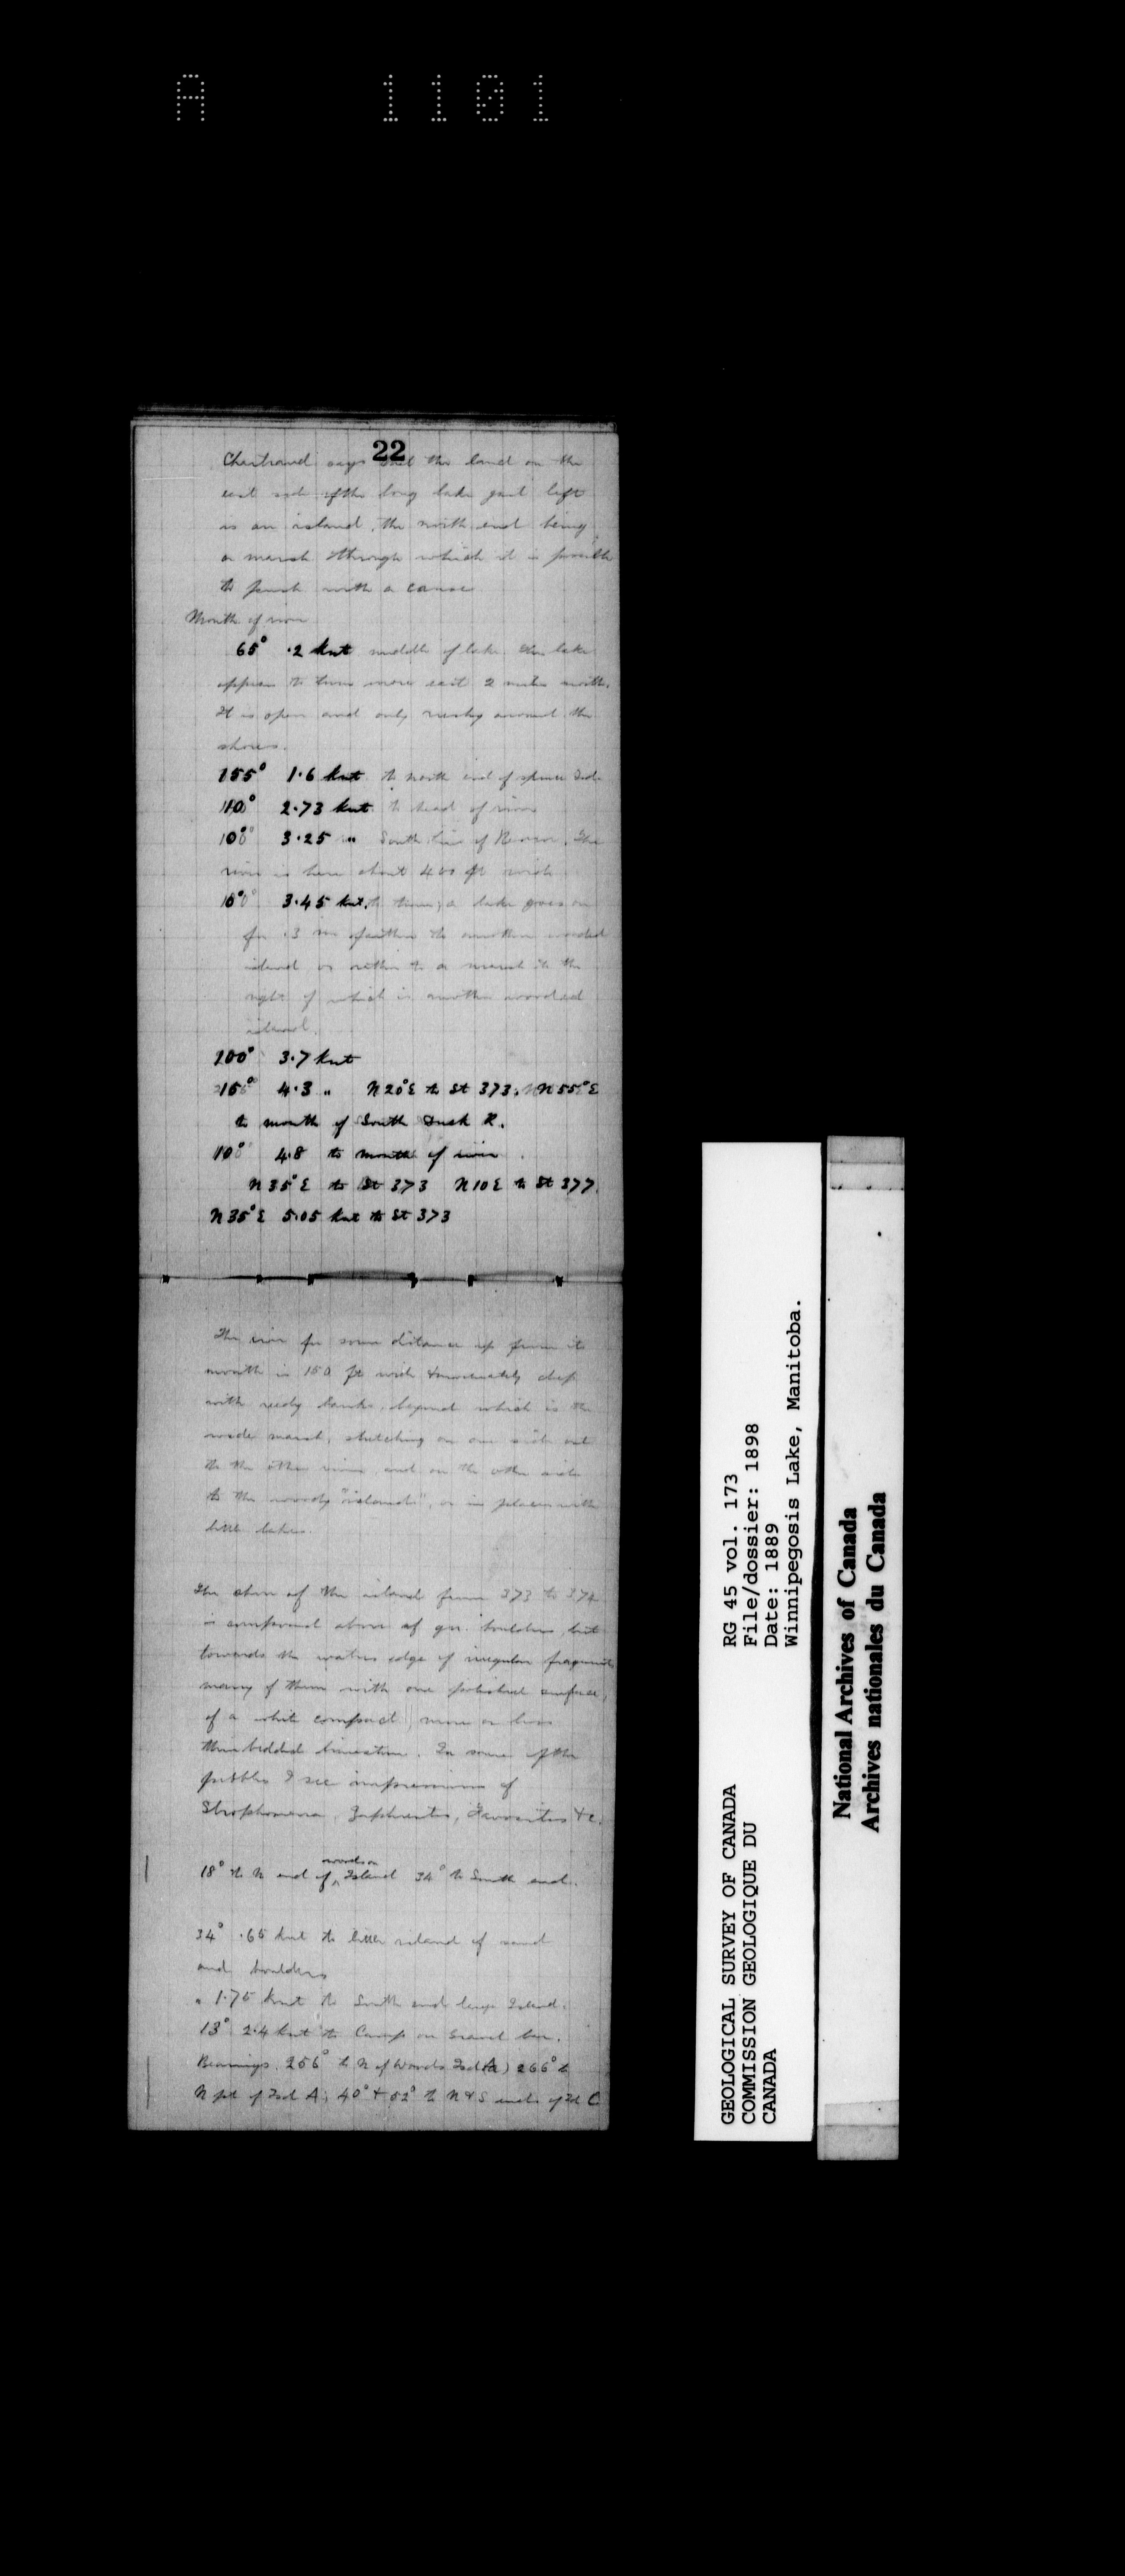 A 1101
22
Chartrand says that the land on the
east side of the long lake just left
is an island, the north end being
a marsh through which it is possible
to push with a canoe
Mouth of river
65° .2 knt middle of lake. The lake
appears to turn more east 2 miles north.
It is open and only rushy around the
shores.
155° 1.6 knt to north end of spruce Isd.
110° 2.73 knt to head of river
100° 3.25 " South line of Reserve. The
river is here about 400 ft wide
3.45 knt. to a lake goes on
for .3 m farther to another wooded
island or rather to a marsh to the
right of which is another wooded
island.
200° 3.7 knt
4.3 " N20°E to St 373. N55°E
to mouth of South Duck R.
110° 4.8 to mouth of river.
N35°E to St 373 N10E to St 377
N35°E 5.05 knt to St 373
The river for some distance up from its
mouth is 150 ft wide & moderately deep
with reedy banks, beyond which is the
wide marsh, stretching on one side out
to the other river, and on the other side
to the woody "islands", or in places with
little lakes.
The shore of the island from 373 to 374
is composed above of gn. boulders but
towards the waters edge of irregular fragments
many of them with one polished surface,
of a white compact, more or less
thin bedded limestone. In some of the
pebbles I see impressions of
Strophomena, Zaphrentis, Favosites &c.
18° to N end of Island 34° to South end.
34° .65 knt to little island of sand
and boulders
" 1.75 knt to South end large Island.
13° 2.4 knt to Camp on Gravel bar.
Bearings 256° to N of Woods Isd (A) 266° to
N pt of Isd A; 40° & 52° to N & S ends of Id C
GEOLOGICAL SURVEY OF CANADA
COMMISSION GEOLOGIQUE DU
CANADA
RG 45 vol. 173
File/dossier: 1898
Date: 1889
Winnipegosis Lake, Manitoba.
National Archives of Canada
Archives nationales du Canada